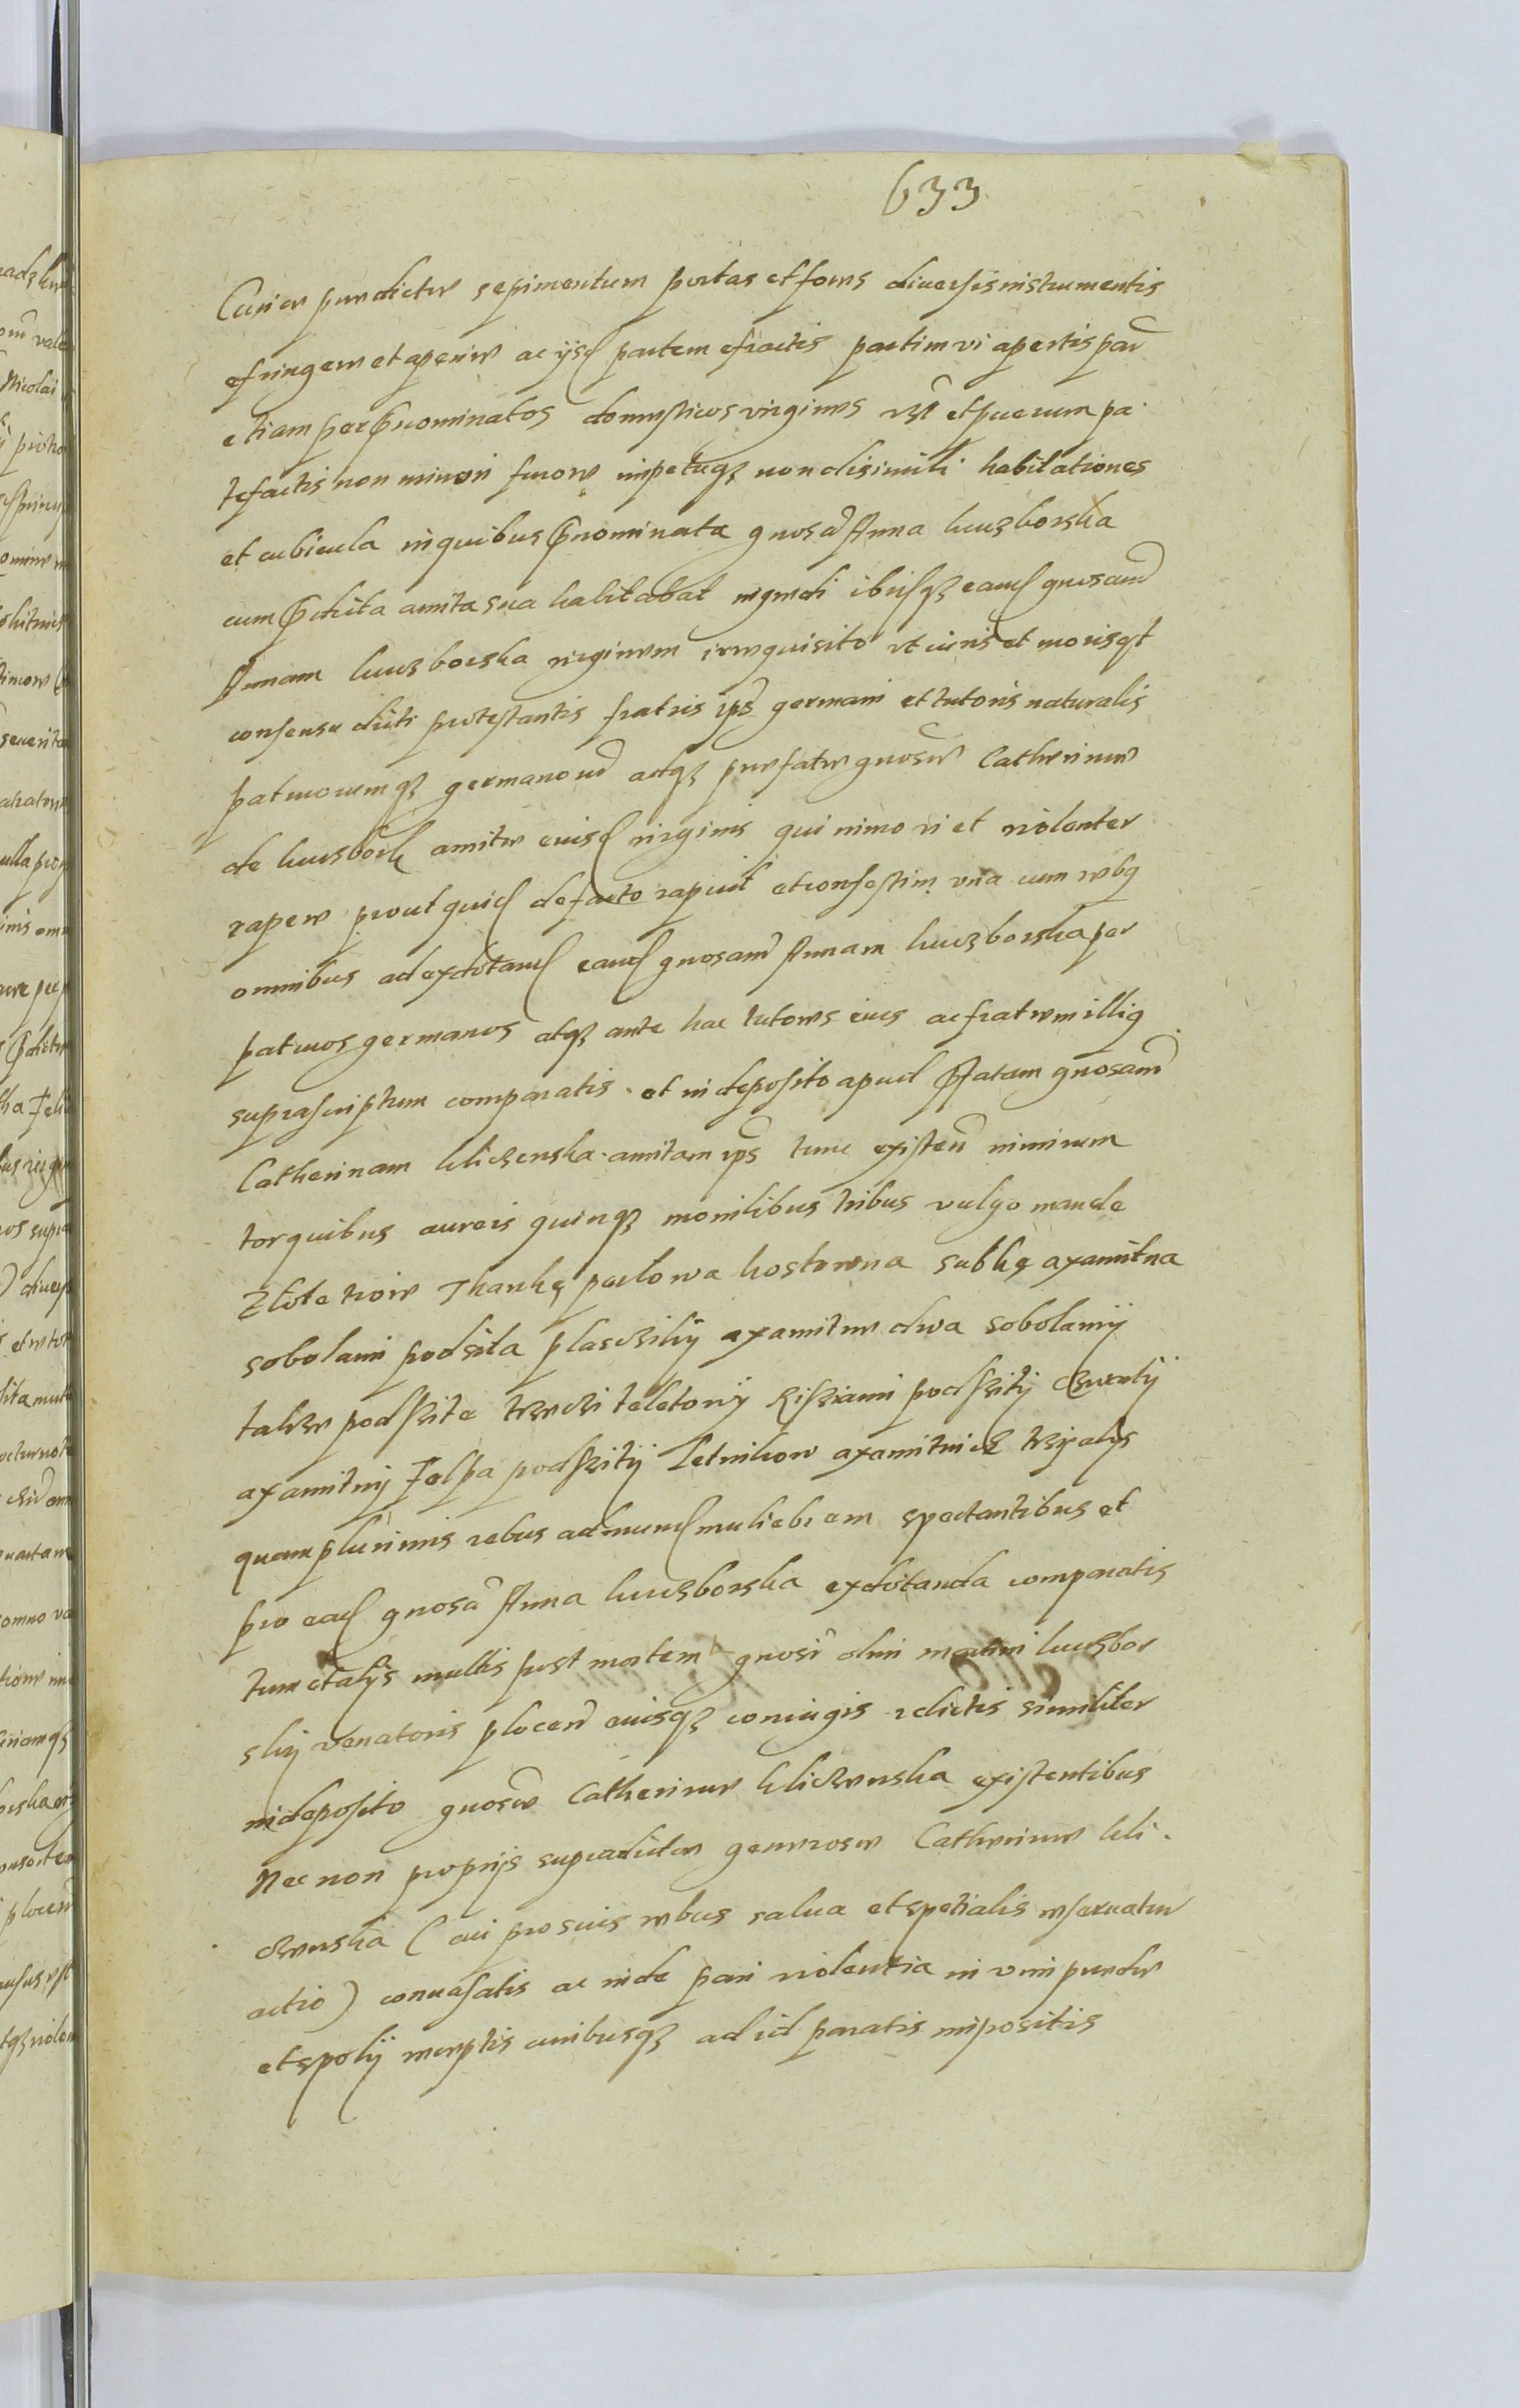 633
Curiae praedictae sepimentum portas et fores diuersis instrumentis
efringere et aperire ac ijsd partem efractis partim vi apertis par
etiam per prenominatos domesticos virgines et puerum pa
tefactis non minori furore impetuqz non disimili habitationes
et cubicula in quibus prenominata gnosa Anna kuczborska
cum predicta amita sua habitabat ingredi ibiqz eand gnosam
Annam kuczborska virginem irrequisito vt iuris et moris est
consensu dicti protestantis fratris ips germani et tutoris naturalis
patruorumqz germanorum adqz praefatae gnosae Catherinae
de kuczbork amitae eiusd virginis qui nimo vi et violenter
rapere prout quid de facto rapuit et confestim vna cum rebq
omnibus ad exdotand eand gnosam Annam kuczborska per
patruos germanos atqz ante hac tutores eius ac fratrem illiq
suprascriptum comparatis et in deposito apud pfatam gnosam
Catherinam kliczenska amitam ips tunc existen nimirum
torquibus aureis quinqz monilibus tribus vulgo manele
Zlote troie Thankę perlowa kosztowna subkę axamitna
sobolami podsita plasczikij axamitne dwa sobolamij
takze podszite trzeczi teletowij Risziami podszitij czwartij
axamitnij Folpa podszitij Letnikow axamitnich trzy alijs
quamplurimis rebus ad mund muliebrem spectantibus et
pro ead gnosa Anna kuczborska exdotanda comparatis
tum et alijs multis post mortem gnosi olim martini kuczbor
skij venatoris plocen eiusqz coniugis relictis similiter
in deposito gnosae Catherinae kliczenska existentibus
Nec non proprijs supradictae generosae Catherinae kli
czenska (cui pro suis rebus salua et spetialis reseruatur
actio) conuasatis ac inde pari violentia in vim praedae
et spolij inreptis curribusqz ad id paratis impositis